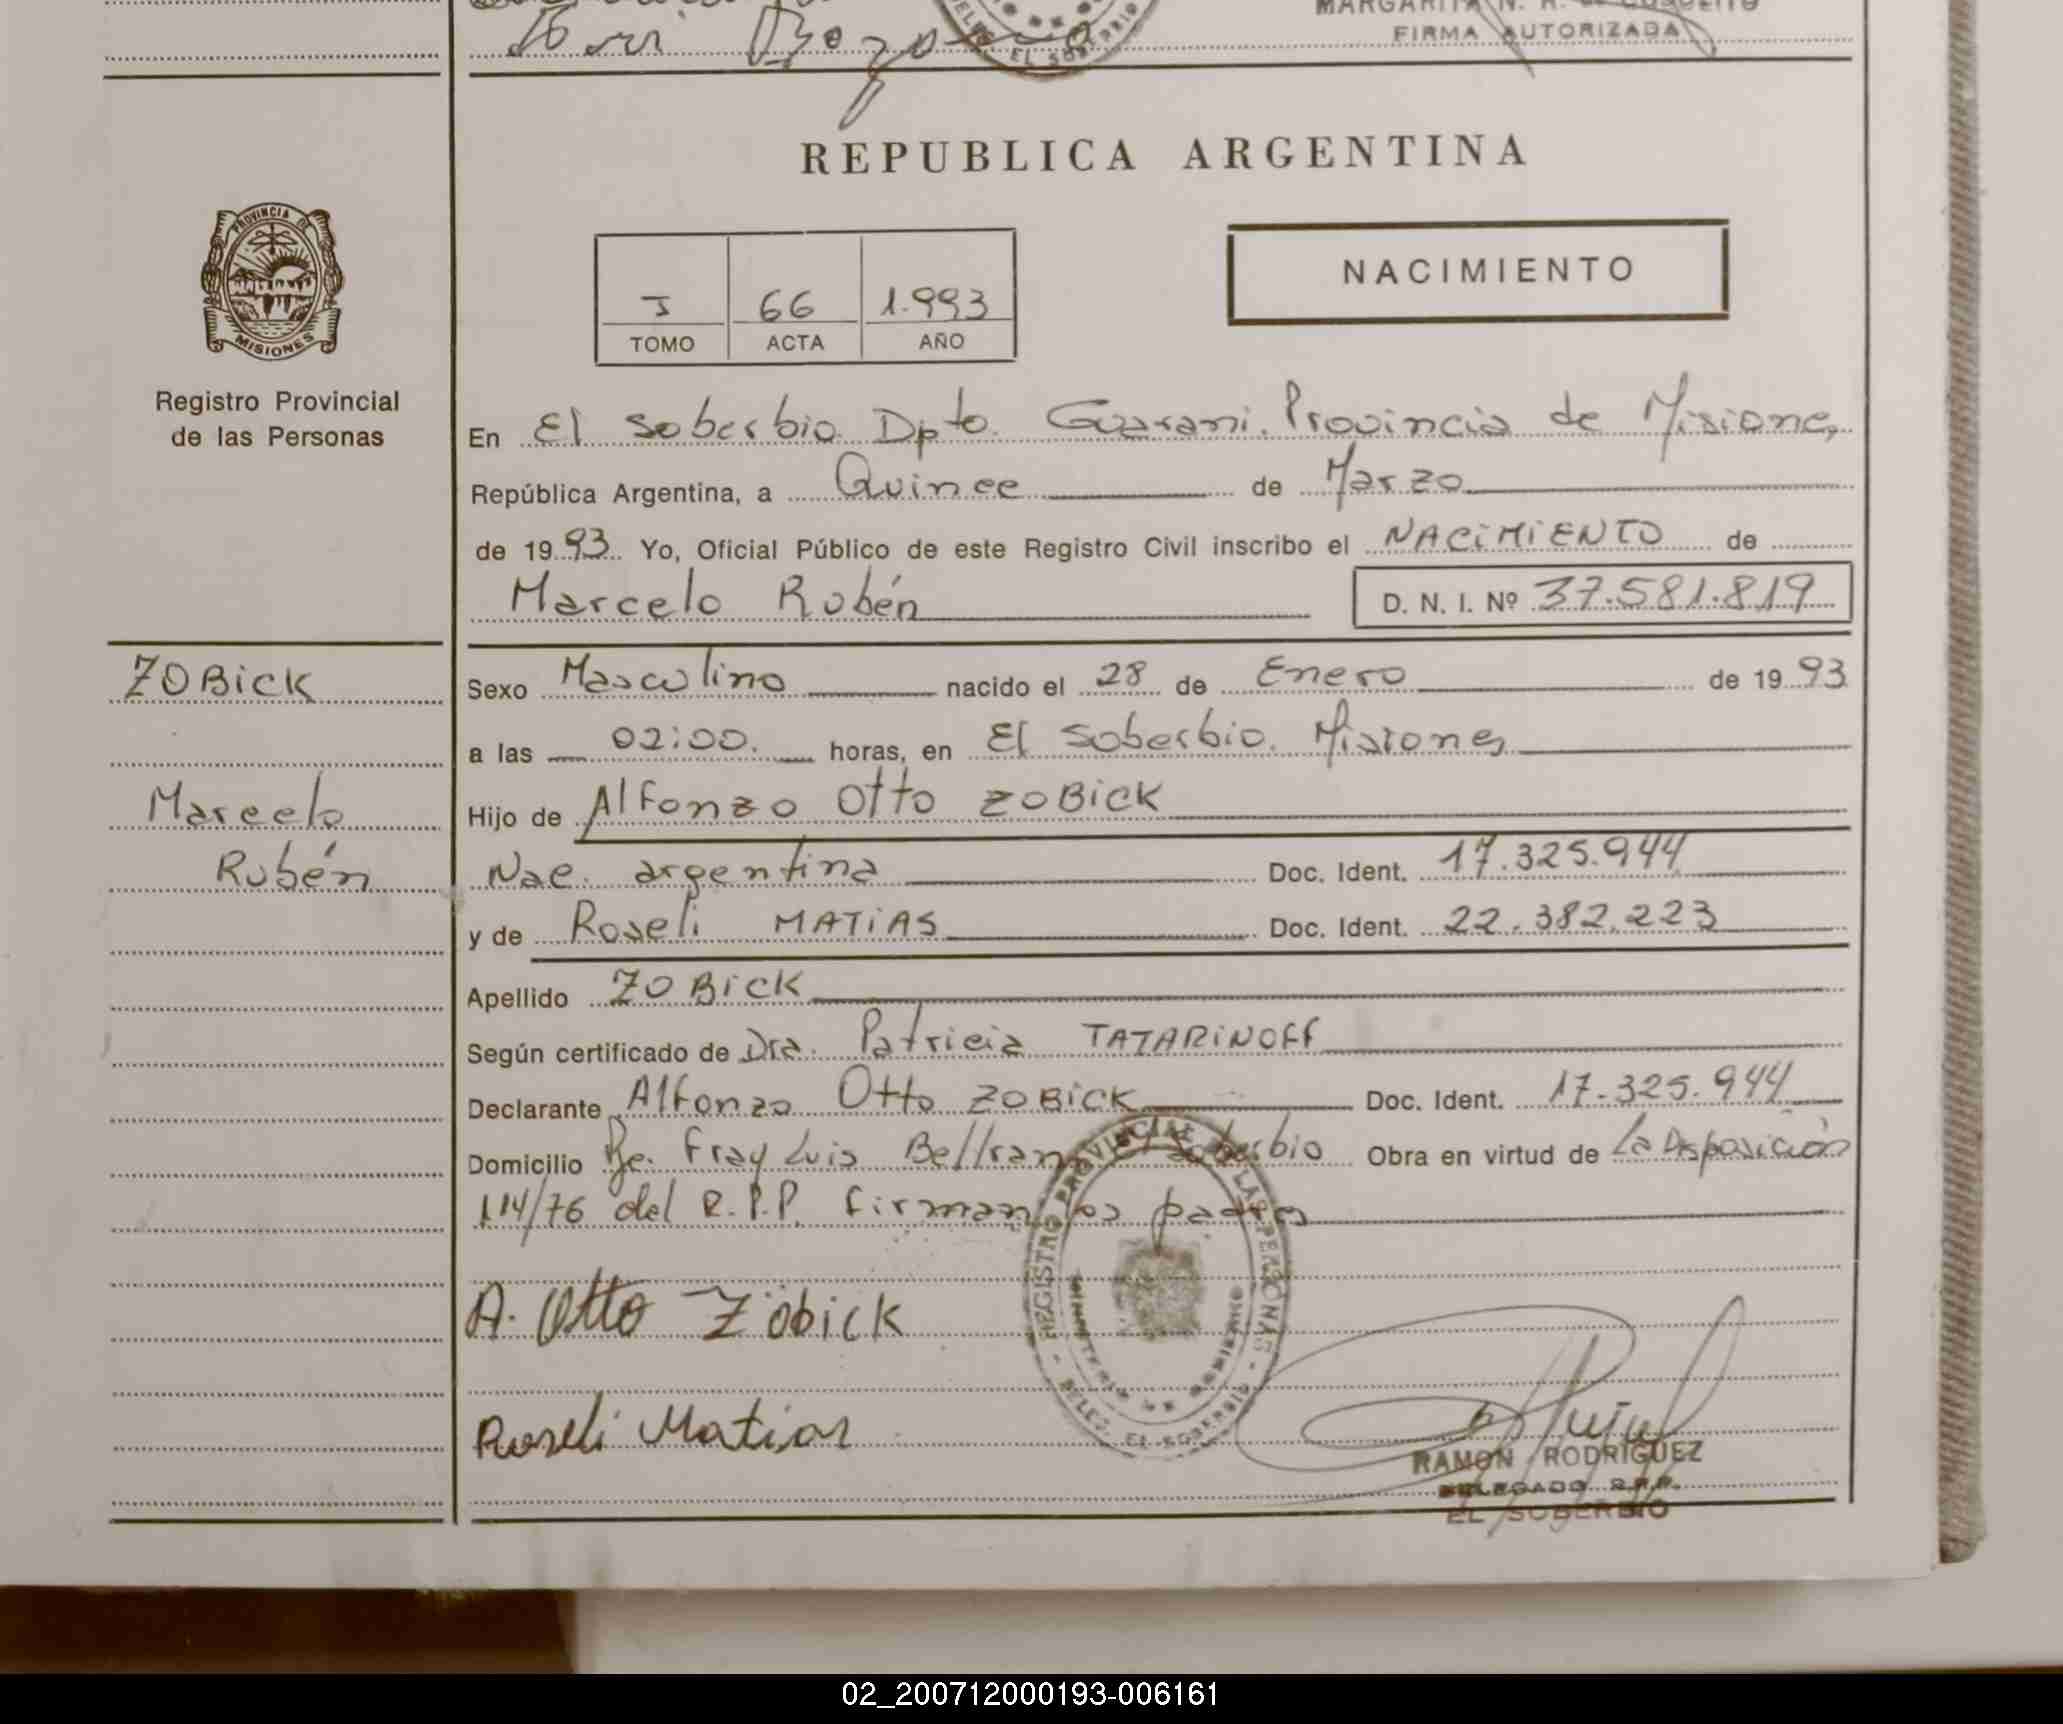 MARGARITA N. R.
FIRMA AUTORIZADA
EL SOBERBIO
REPUBLICA ARGENTINA
PROVINCIA DE
MISIONES
Registro Provincial
de las Personas
I 66 1.993
TOMO ACTA AÑO
NACIMIENTO
En El Soberbio. Dpto. Guarani. Provincia de Misiones
República Argentina, a Quince de Marzo
de 1993 Yo, Oficial Público de este Registro Civil inscribo el NACIMIENTO de
Marcelo Rubén D. N. I. Nº 37.581.819
ZOBICK
Marcelo
Rubén
Sexo Masculino nacido el 28 de Enero de 1993
a las 02:00. horas, en El Soberbio. Misiones
Hijo de Alfonzo Otto ZOBICK
Nac. argentina Doc. Ident. 17.325.944
y de Roseli MATIAS Doc. Ident. 22.382.223
Apellido ZOBICK
Según certificado de Dra. Patricia TATARINOFF
Declarante Alfonzo Otto ZOBICK Doc. Ident. 17.325.944
Domicilio Fray Luis Beltran El Soberbio Obra en virtud de La Disposición
114/76 del R.P.P. firman los padres
A. Otto Zöbick
Roseli Matias
REGISTRO PROVINCIAL DE LAS PERSONAS
MINISTERIO DE GOBIERNO
DELEG. EL SOBERBIO
RAMON RODRIGUEZ
DELEGADO R.P.P.
EL SOBERBIO
02_200712000193-006161